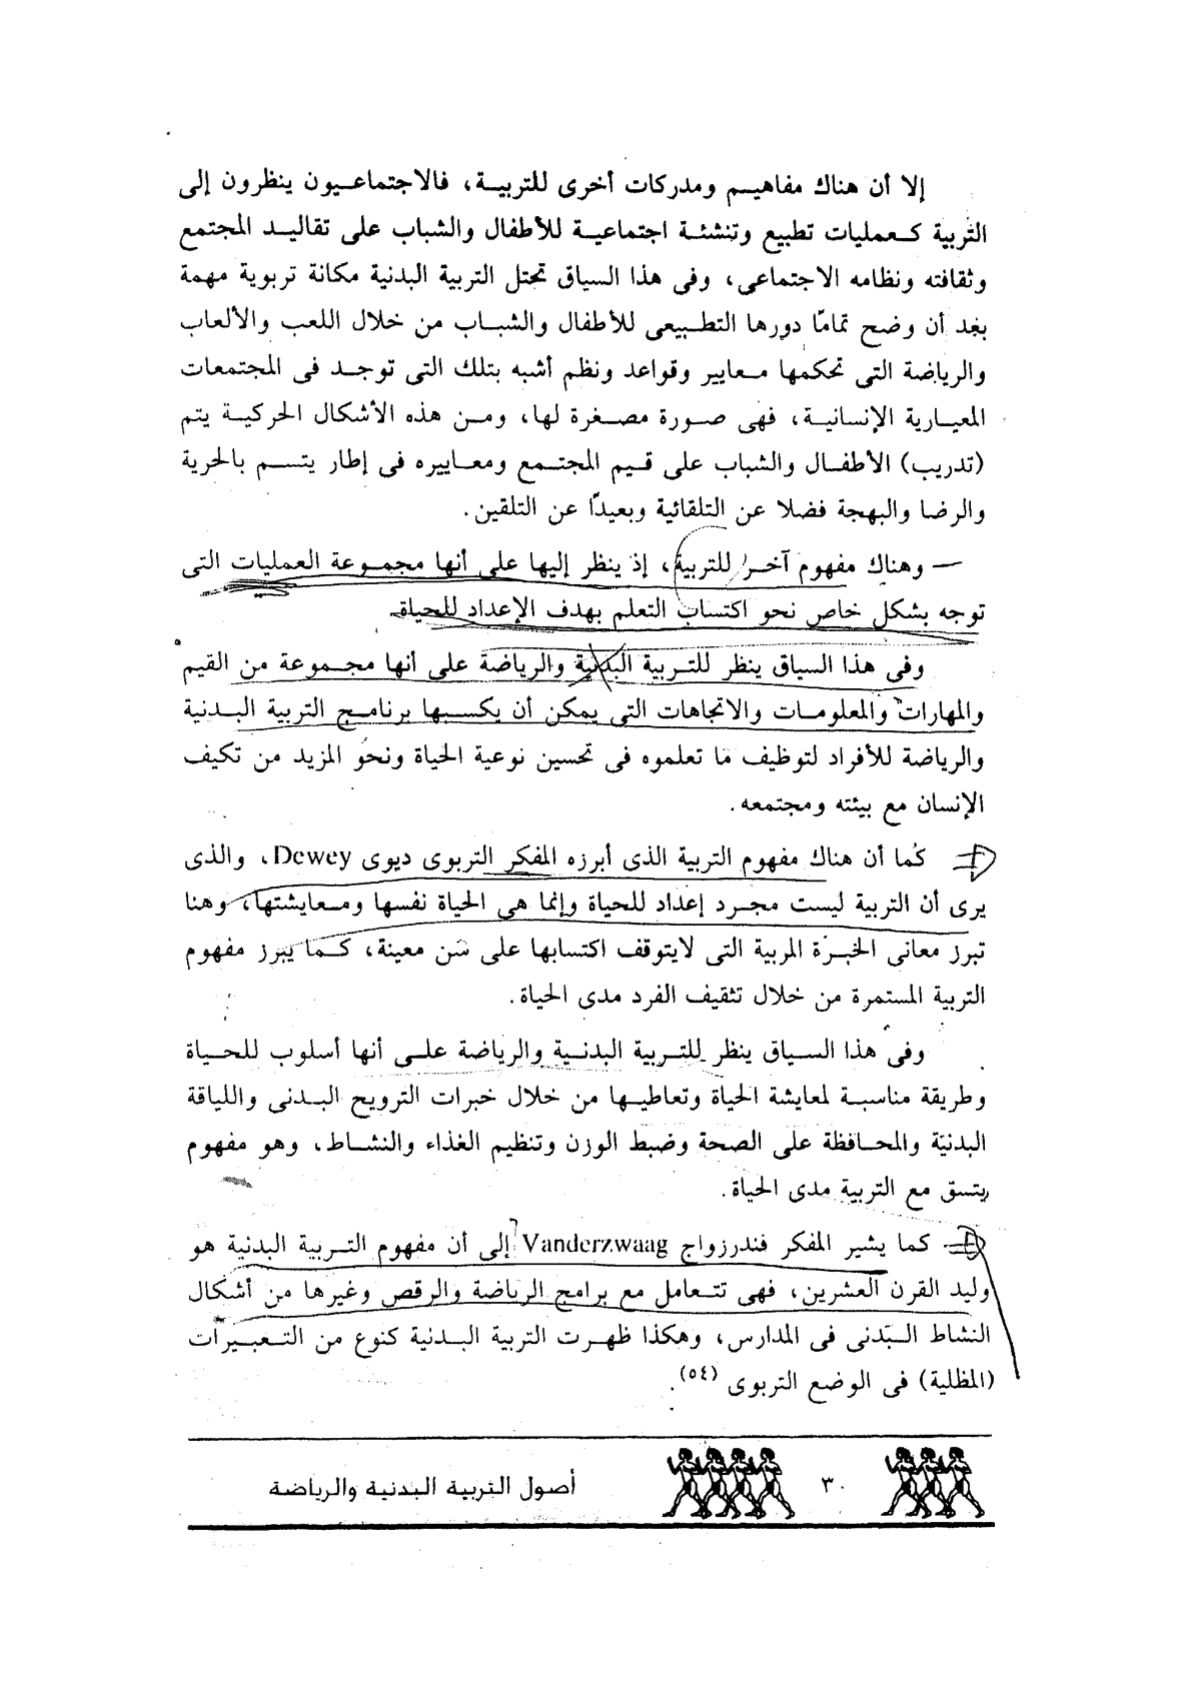 إلا أن هناك مفاهيم ومدركات أخرى للتربية، فالاجتماعيون ينظرون إلى
التربية كعمليات تطبيع وتنشئة اجتماعية للأطفال والشباب على تقاليد المجتمع
وثقافته ونظامه الاجتماعى، وفى هذا السياق تحتل التربية البدنية مكانة تربوية مهمة
بعد أن وضح تمامًا دورها التطبيعى للأطفال والشباب من خلال اللعب والألعاب
والرياضة التى تحكمها معايير وقواعد ونظم أشبه بتلك التى توجد فى المجتمعات
المعيارية الإنسانية، فهى صورة مصغرة لها، ومن هذه الأشكال الحركية يتم
(تدريب) الأطفال والشباب على قيم المجتمع ومعاييره فى إطار يتسم بالحرية
والرضا والبهجة فضلا عن التلقائية وبعيدًا عن التلقين.
– وهناك مفهوم آخر للتربية، إذ ينظر إليها على أنها مجموعة العمليات التى
توجه بشكل خاص نحو اكتساب التعلم بهدف الإعداد للحياة.
وفى هذا السياق ينظر للتربية البدنية والرياضة على أنها مجموعة من القيم
والمهارات والمعلومات والاتجاهات التى يمكن أن يكسبها برنامج التربية البدنية
والرياضة للأفراد لتوظيف ما تعلموه فى تحسين نوعية الحياة ونحو المزيد من تكيف
الإنسان مع بيئته ومجتمعه.
– كما أن هناك مفهوم التربية الذى أبرزه المفكر التربوى ديوى Dewey، والذى
يرى أن التربية ليست مجرد إعداد للحياة وإنما هى الحياة نفسها ومعايشتها، وهنا
تبرز معانى الخبرة المربية التى لايتوقف اكتسابها على سن معينة، كما يبرز مفهوم
التربية المستمرة من خلال تثقيف الفرد مدى الحياة.
وفى هذا السياق ينظر للتربية البدنية والرياضة على أنها أسلوب للحياة
وطريقة مناسبة لمعايشة الحياة وتعاطيها من خلال خبرات الترويح البدنى واللياقة
البدنية والمحافظة على الصحة وضبط الوزن وتنظيم الغذاء والنشاط، وهو مفهوم
يتسق مع التربية مدى الحياة.
– كما يشير المفكر فندرزواج Vanderzwaag إلى أن مفهوم التربية البدنية هو
وليد القرن العشرين، فهى تتعامل مع برامج الرياضة والرقص وغيرها من أشكال
النشاط البدنى فى المدارس، وهكذا ظهرت التربية البدنية كنوع من التعبيرات
(المظلية) فى الوضع التربوى (٥٤).
٣٠ أصول التربية البدنية والرياضة